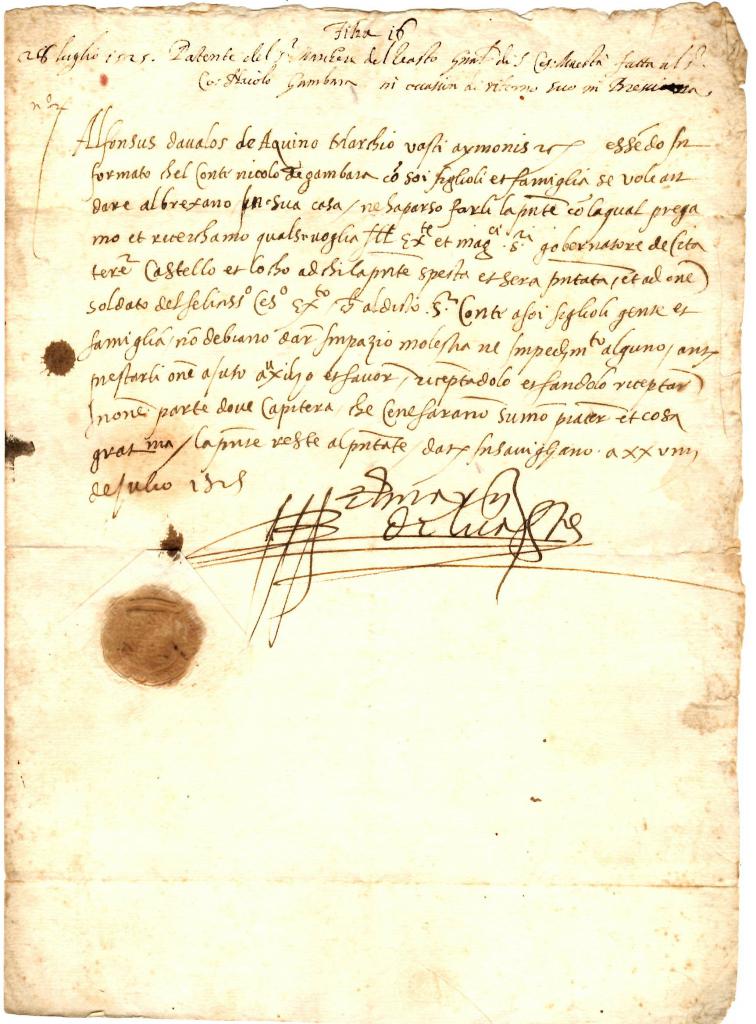 Filza 16
28 luglio 1525. Patente del S.r Marchese del Vasto de S. Ces. Maestà fatta al S.
Co: Nicolo Gambara in occasion di ritorno suo in Bresciana
Alfonsus davalos de Aquino vasti aymonis essēdo In
formato chel Conte nicolo de gambara cō soi figlioli et famiglia se vole an
dare al brexano In sua casa / ne ha parso farli la pn̄te cō la qual prega
mo et ricerchamo qualsevoglia Ill. Ex.te et mag.ci S.r gobernatore de Cita
tere Castello et locho ad chi la pn̄te specta et sera pn̄tata / et ad onē
soldato del felicis.o Ces.o Ex.to / al dicto S.r Conte a soi figlioli gente et
famiglia / nō debiano dar Impazio molestia ne Impedim.to alguno / ant
prestarli onē ajuto auxilio et favor / riceptādolo et fandolo riceptar
In onē parte dove Capitera / che Cene farano sumō piacer et cosa
gratma / la pn̄te reste al pn̄tāte / dat In savigliano a xxviii
de Julio 1525
el marq̄s
del Vasto